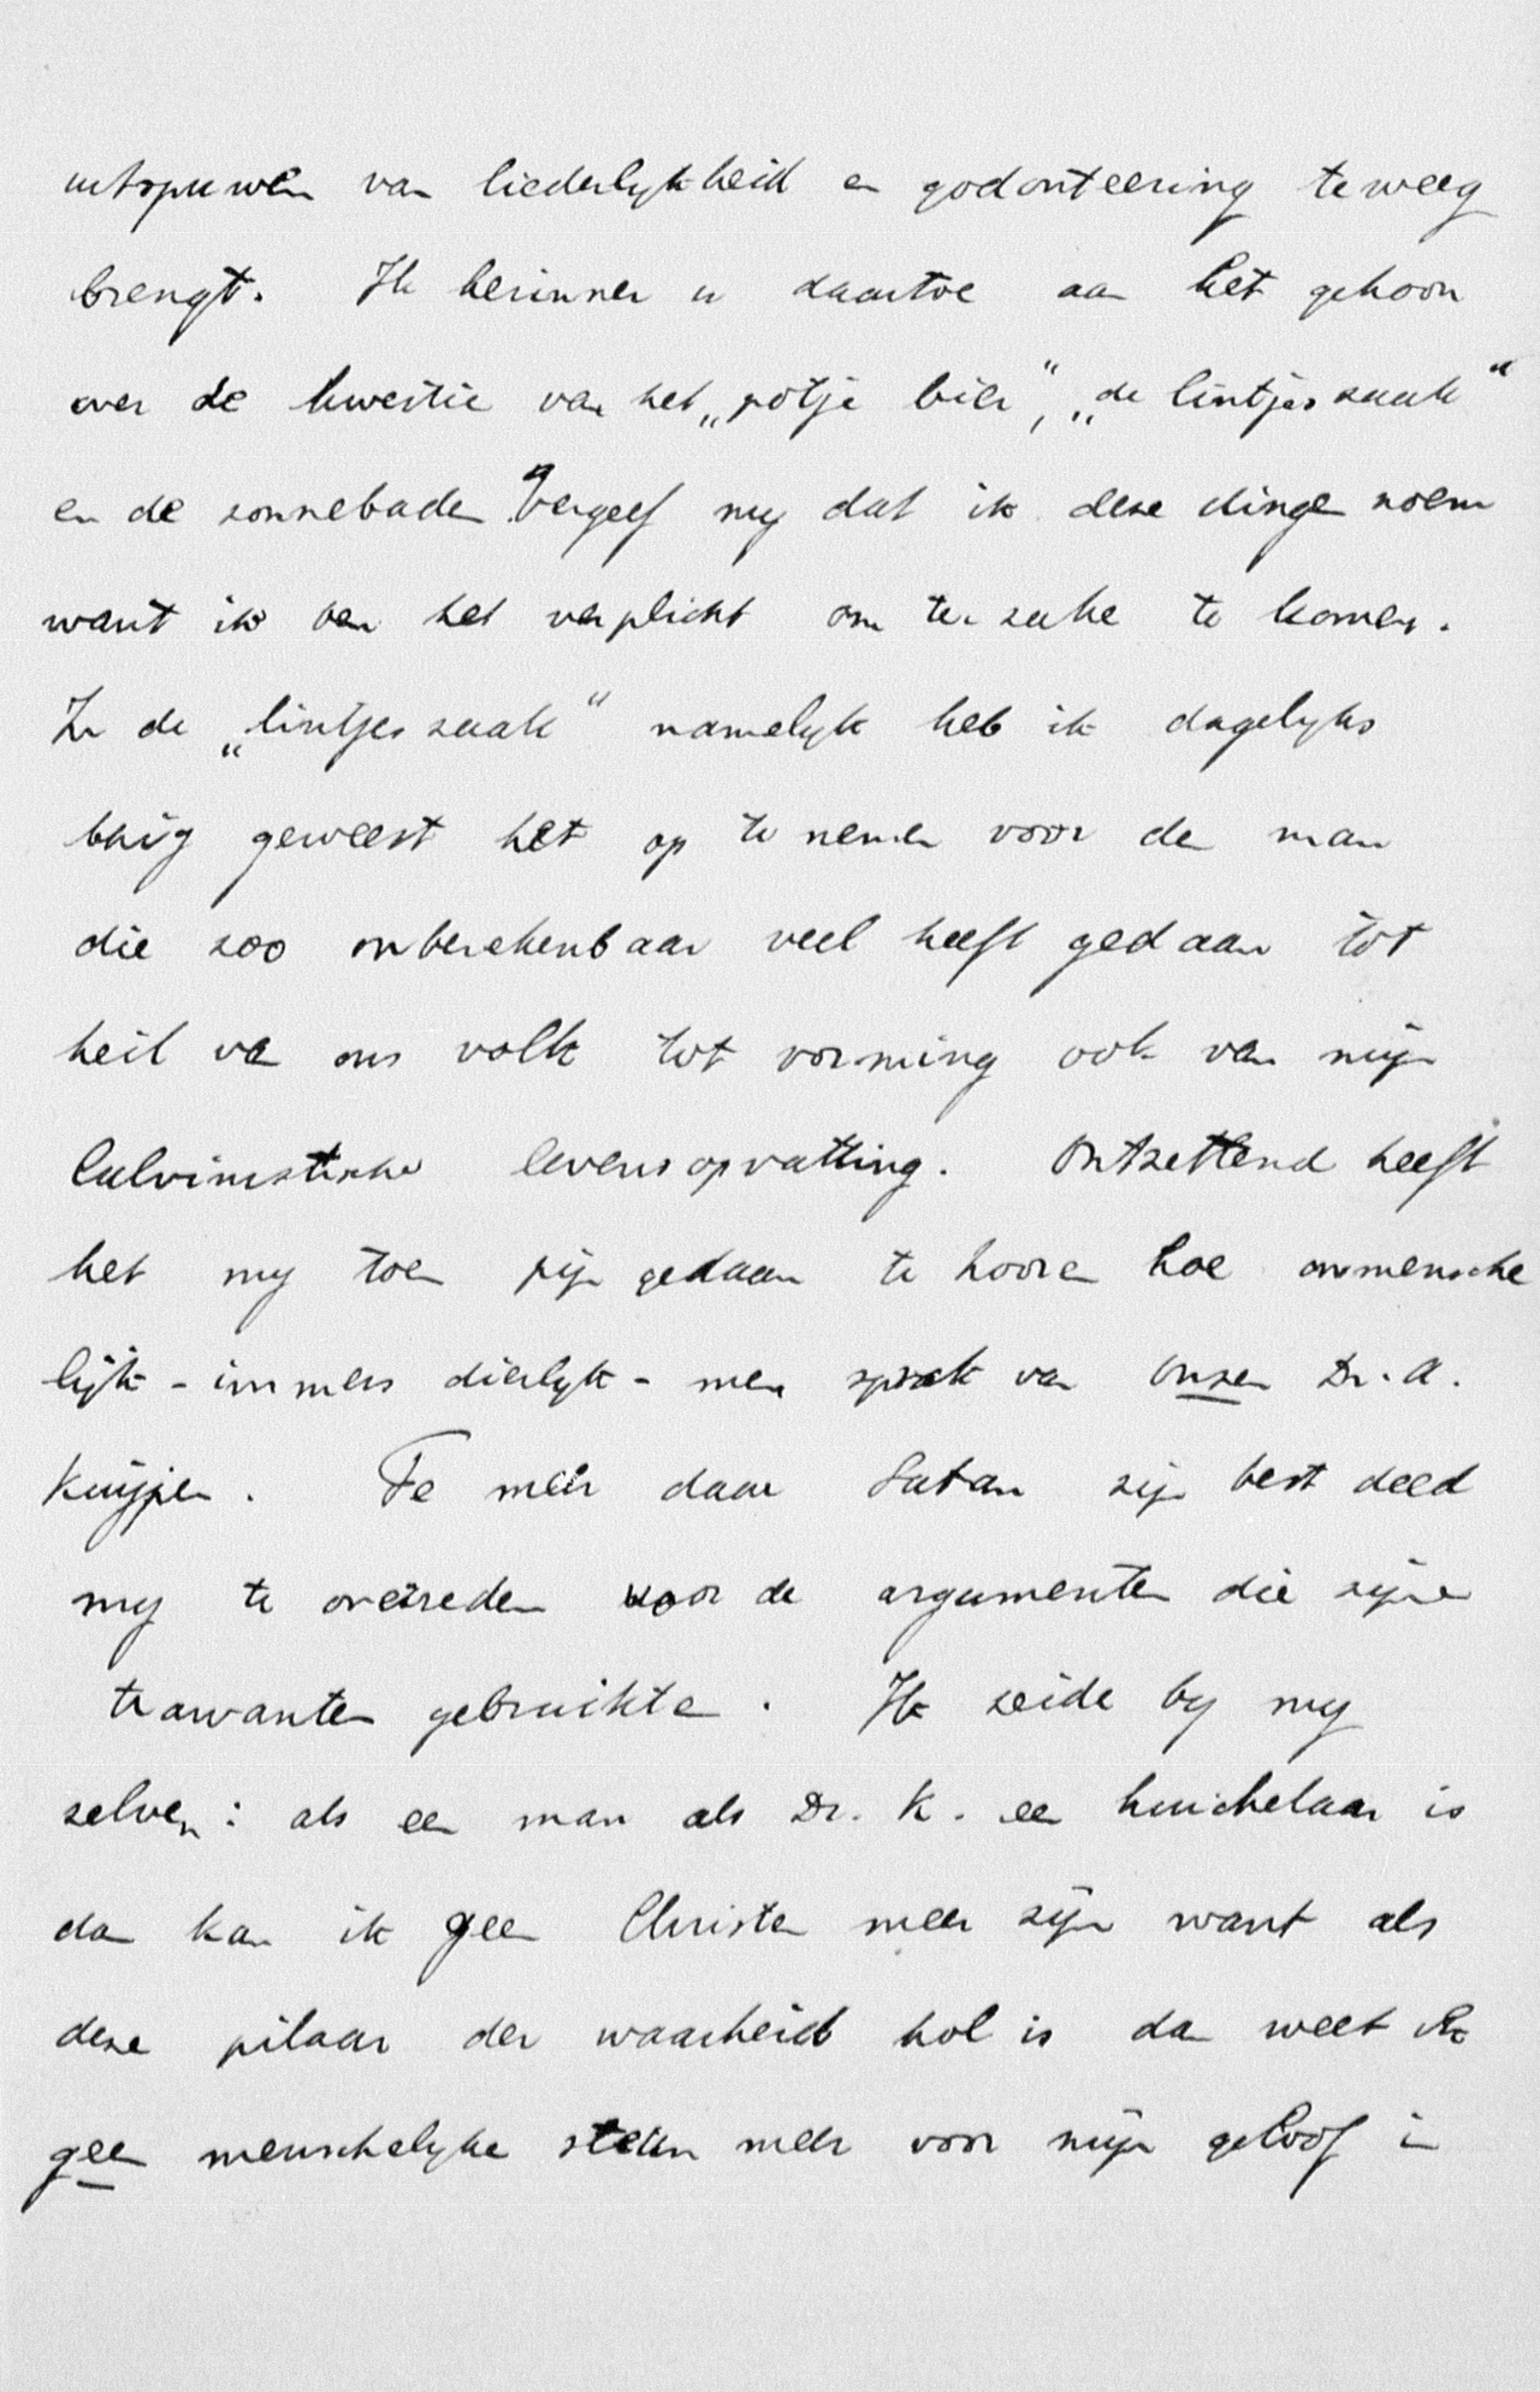 uitspuwen van liederlykheid en godonteering teweeg
brengt. Ik herinner u daartoe aan het gehoon
over de kwestie van het „potje bier“, „de lintjeszaak“
en de zonnebaden. Vergeef my dat ik deze dingen noem
want ik ben het verplicht om ter zake te komen.
In de „lintjeszaak“ namelyk heb ik dagelyks
bezig geweest het op te nemen voor den man
die zoo onberekenbaar veel heeft gedaan tot
heil van ons volk tot vorming ook van mijn
Calvinistische levensopvatting. Ontzettend heeft
het my toen pijn gedaan te hooren hoe onmensche
lijk - immers dierlyk - men sprak van onzen Dr. A.
Kuijper. Te meer daar Satan zijn best deed
my te overreden voor de argumenten die zijne
trawanten gebruikten. Ik zeide by my
zelven: als een man als Dr. K. een huichelaar is
dan kan ik geen Christen meer zijn want als
deze pilaar der waarheid hol is dan weet ik
geen menschelyke steun meer voor mijn geloof in